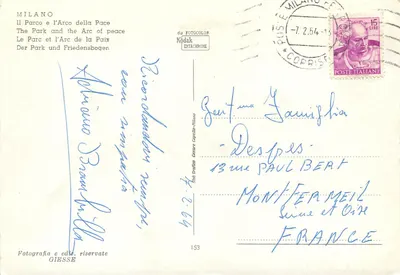 MILANO
Il Parco e l'Arco della Pace
The Park and the Arc of peace
Le Parc et l'Arc de la Paix
Der Park und Friedensbogen
da FOTOCOLOR
Kodak
EKTACHROME
MILANO
7.2.64
POSTE ITALIANE
Ricordandovi sempre,
con simpatia
Adriano Brambilla
7.2.64
Gent.me Famiglia
Despres
13 rue PAUL BERT
MONTFERMEIL
Seine et Oise
FRANCE
153
Fotografia e ediz. riservate
GIESSE